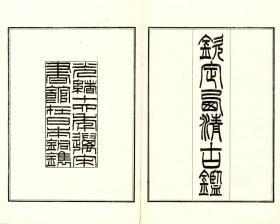 欽定西清古鑑
光緒十四年邁宋
書館在日本銅鐫